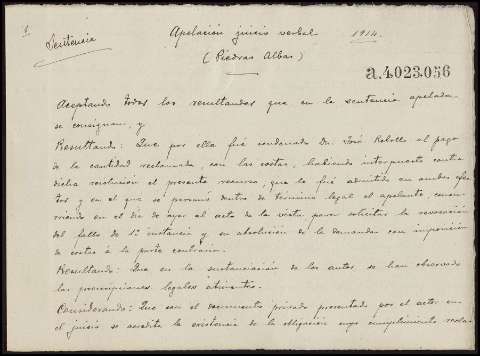 Sentencia
Apelación juicio verbal 1914.
(Piedras Albas)
a.4023.056
Aceptando todos los resultandos que en la sentencia apelada
se consignan, y
Resultando: Que por ella fué condenado Dn. José al pago
de la cantidad reclamada, con las costas, habiendo interpuesto contra
dicha resolución el presente recurso, que le fué admitido en ambos efec-
tos, y en el que se personó dentro de término legal el apelante, concu-
rriendo en el día de ayer al acto de la vista, para solicitar la revocación
del fallo de 1ª instancia y su absolución de la demanda con imposición
de costas á la parte contraria.
Resultando: Que en la sustanciación de los autos se han observado
las prescripciones legales atinentes.
Considerando: Que con el documento privado presentado por el actor en
el juicio se acredita la existencia de la obligación cuyo cumplimiento recla-